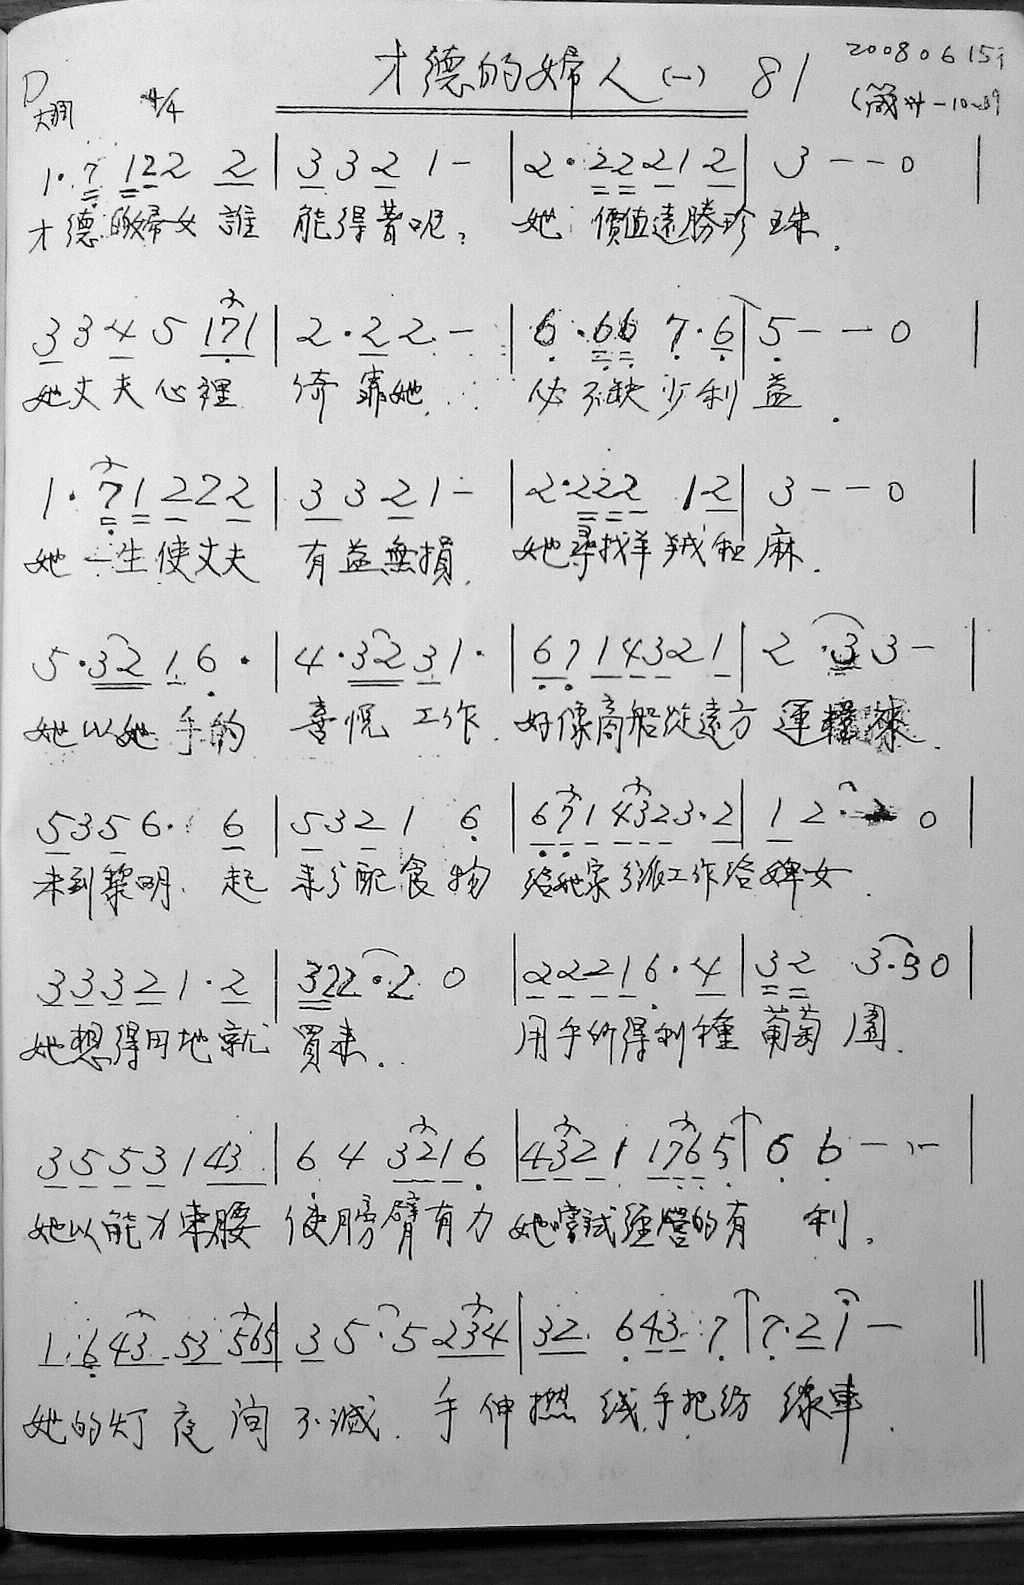 才德的婦人(一) 81
20080615
D大調 4/4 (箴卅一10~19
1·7 122 2 | 3 3 2 1 - | 2·22 21 2 | 3 - - 0 |
才德的婦女誰 能得著呢? 她價值遠勝珍珠.
3 3 4 5 171 | 2·2 2 - | 6·66 7·6 | 5 - - 0 |
她丈夫心裡 倚靠她. 必不缺少利益.
1·71 2 2 2 | 3 3 2 1 - | 2·222 12 | 3 - - 0 |
她一生使丈夫 有益無損. 她尋找羊羢和麻.
5·32 1 6· | 4·32 3 1· | 6 7 1 4 3 2 1 | 2·3 3 - |
她以她手的 喜悅工作. 好像商船從遠方運糧來.
5 3 5 6· 6 | 5 3 2 1 6 | 6 7 1 4 3 2 3·2 | 1 2· 0 |
未到黎明. 起來分配食物 給她家分派工作給婢女.
3 3 3 2 1·2 | 322·2 0 | 2 2 2 1 6·4 | 3 2 3·3 0 |
她想得田地就買來. 用手所得利種葡萄園.
3 5 5 3 1 43 | 6 4 321 6 | 432 1 1765 | 6 6 - - |
她以能力束腰 使膀臂有力 她嚐試經營的有利.
1·6 43 53 565 | 3 5·5 234 | 32 643 7 | 7·2 1 - ||
她的灯夜間不滅. 手伸撚线手把纺線車.